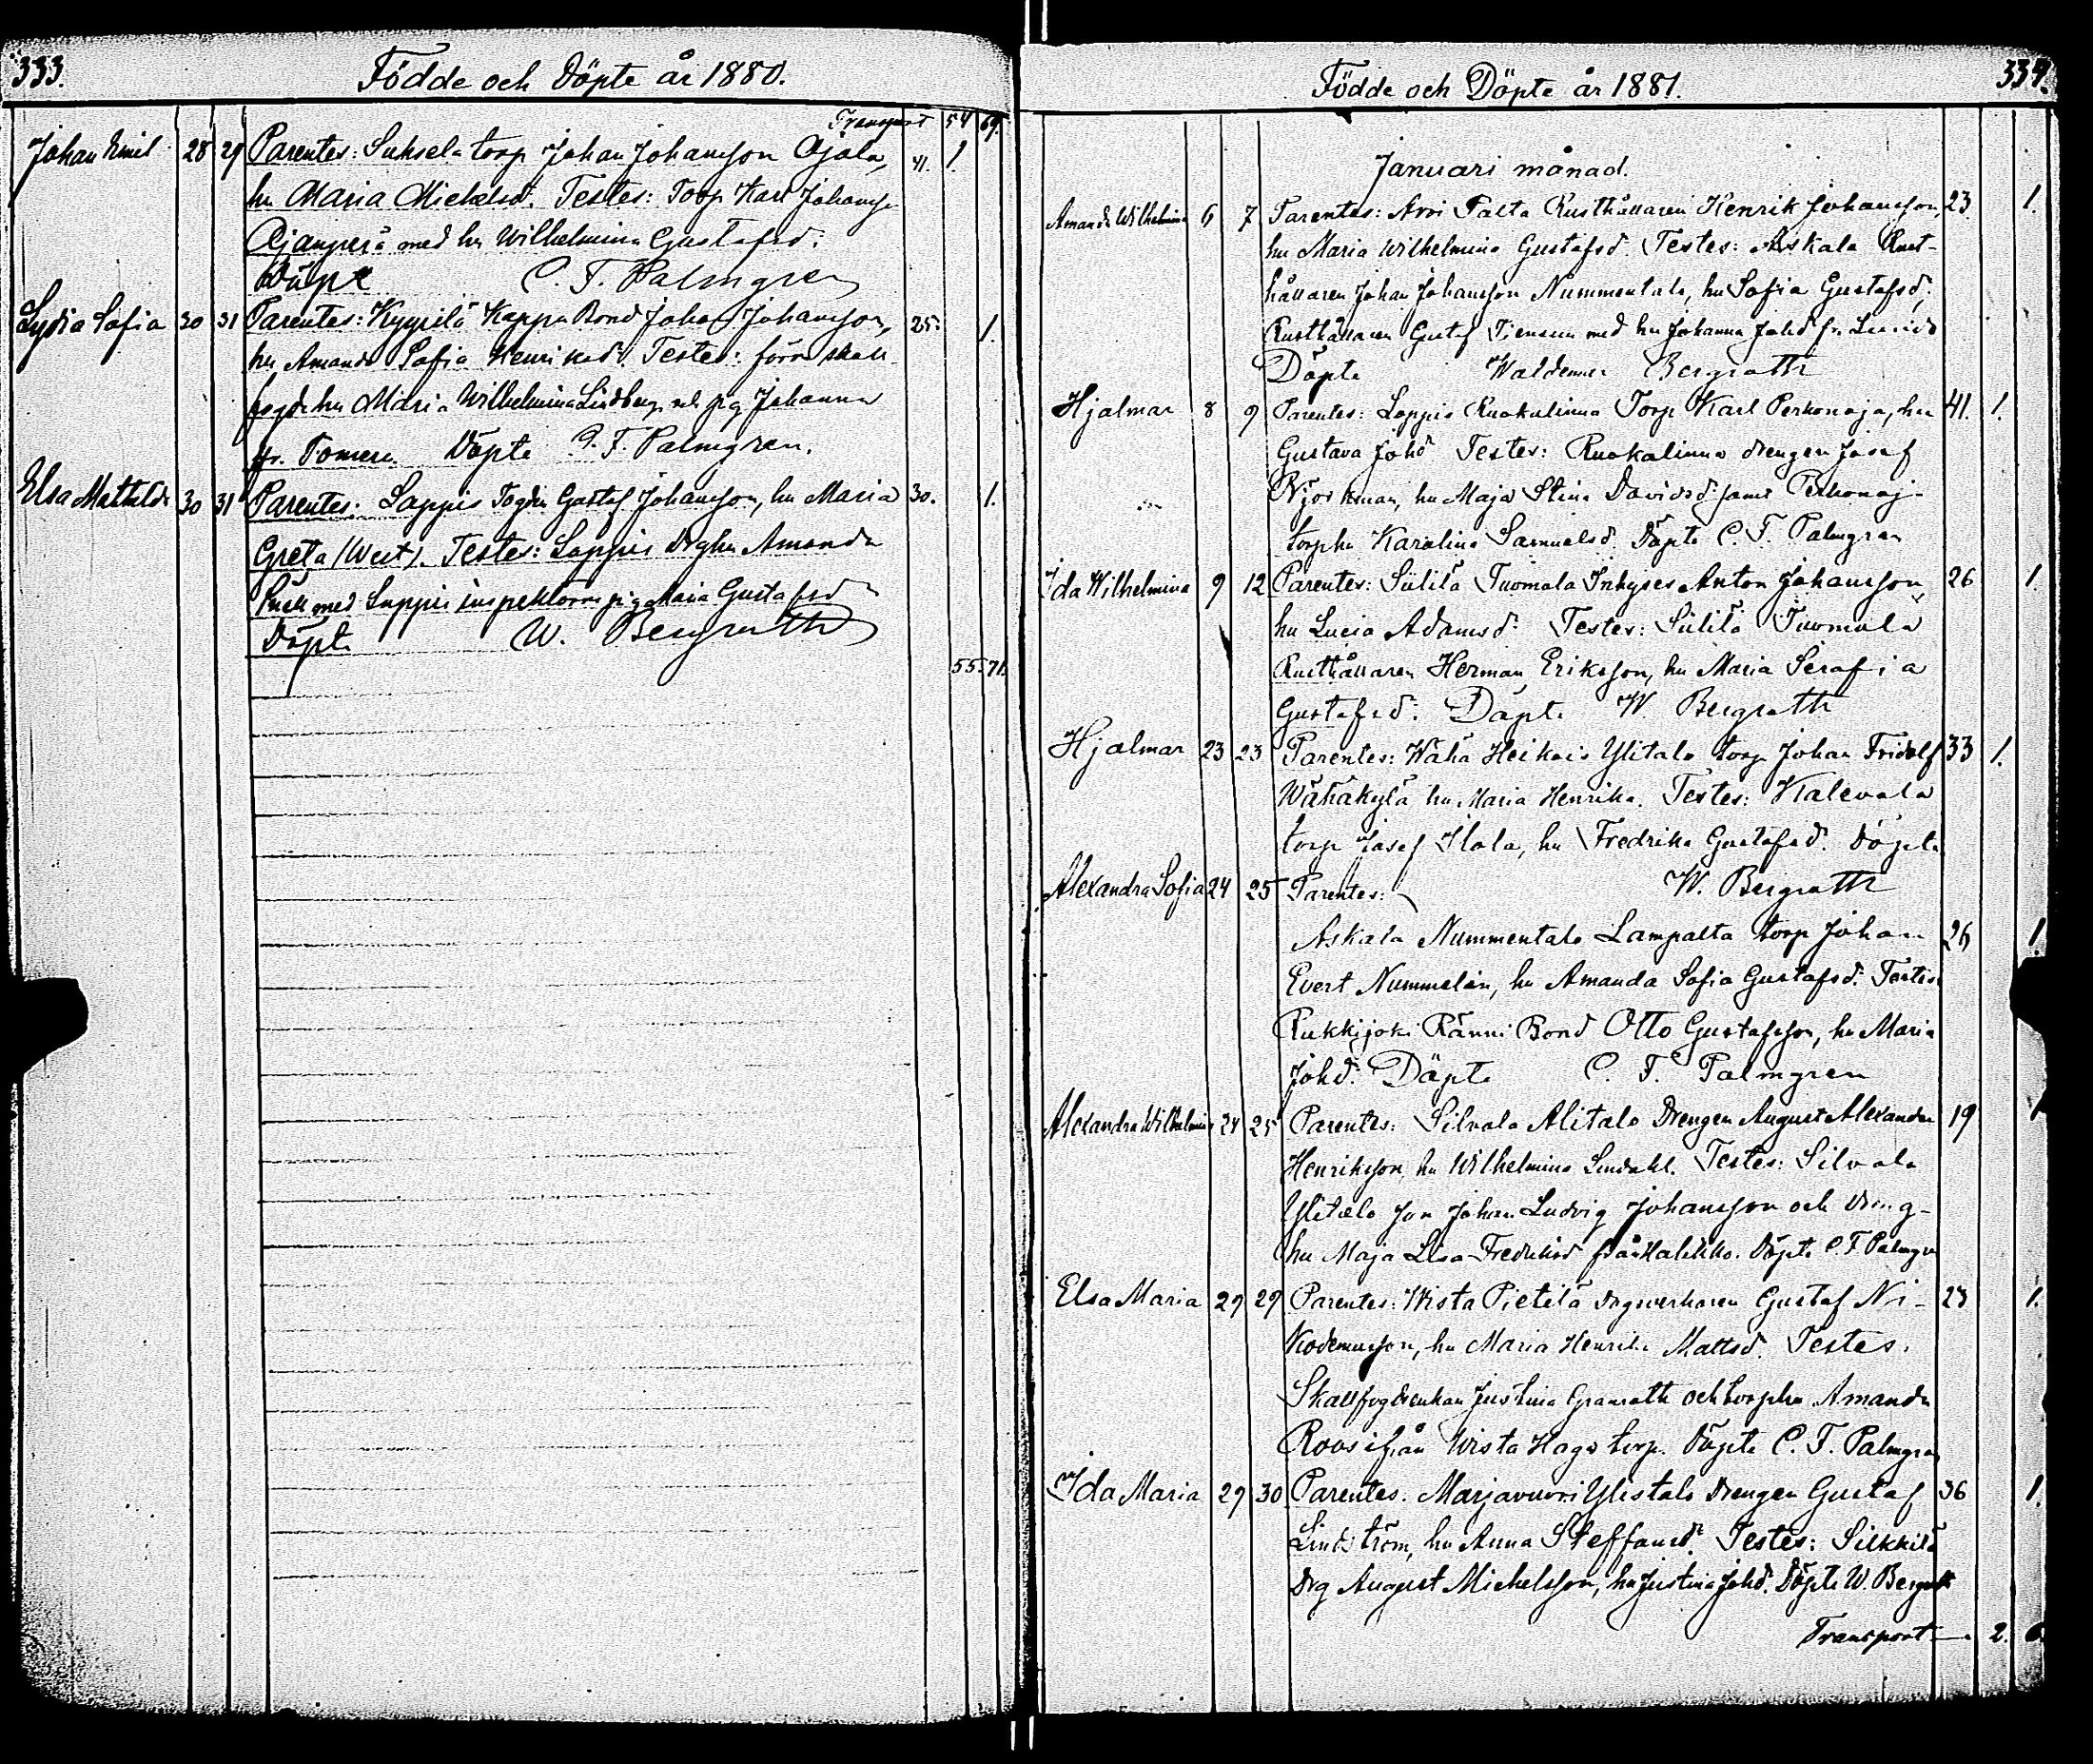 333.
Födde och Döpte år 1880.
Transport 54 69.
Johan Emil 28 29 Parentes: Suksela torp Johan Johansson Ojala, 41. 1.
hu Maria Michelsd. Testes: Torp Karl Johansson
Ojanperä med hu Wilhelmina Gustafsd.
Döpt C. F. Palmgren
Lydia Sofia 30 31 Parentes: Kyynilä Kappa Bond Johan Johansson, 25. 1.
hu Amanda Sofia Henriksd. Testes: förra skall
fogde hu Maria Wilhelmina Lindberg och pig Johanna
fr. Tomeri. Döpte C. F. Palmgren.
Elsa Mathilda 30 31 Parentes: Lappis Gustaf Johansson, hu Maria 30. 1.
Greta (West). Testes: Lappis Drghu Amanda
med Lappis inspektorns piga Maria Gustafsd
Döpte W. Bergroth
55. 71.
334.
Födde och Döpte år 1881.
Januari månad.
Amanda Wilhelmina 6 7 Parentes: Arvi Rusthållaren Henrik Johansson, 23 1.
hu Maria Wilhelmina Gustafsd. Testes: Askala Rust-
hållaren Johan Johansson Nummentalo, hu Sofia Gustafsd.
Rusthållaren Gustaf med hu Johanna Johd fr.
Döpte Waldemar Bergroth
Hjalmar 8 9 Parentes: Lappis Ruokalinna Torp Karl Perkonoja, hu 41. 1.
Gustava Johd Testes: Ruokalinna drengen Josef
Björkman, hu Maja Stina Davidsd. samt Perkonoj-
torphu Karolina Samuelsd. Döpte C. F. Palmgren
Ida Wilhelmina 9 12 Parentes: Siililä Tuomala Inhyses Anton Johansson 26 1.
hu Lucia Adamsd. Testes: Siililä Tuomala
Rusthållaren Herman Eriksson, hu Maria Serafia
Gustafsd. Döpte W. Bergroth
Hjalmar 23 23 Parentes: Wähä Heikois Ylitalo torp Johan Fridolf 33 1.
Wähäkylä hu Maria Henrika. Testes: Kalevala
torp Josef Ilola, hu Fredrika Gustafsd. Döpte
W. Bergroth
Alexandra Sofia 24 25 Parentes:
Askala Nummentalo Lampalta torp Johan 26 1.
Evert Nummelin, hu Amanda Sofia Gustafsd. Testes
Rukkijoki Ränni Bond Otto Gustafsson, hu Maria
Johd. Döpte C. F. Palmgren
Alexandra Wilhelmina 24 25 Parentes: Silvola Alitalo Drengen August Alexander 19 1
Henriksson, hu Wilhelmina Lindahl. Testes: Silvola
Ylitalo son Johan Ludvig Johansson och dreng-
hu Maja Lisa Fredriksd från Halikko. Döpte C. F Palmgren
Elsa Maria 29 29 Parentes: Wista Pietilä dagsverkaren Gustaf Ni- 23 1.
kodemusson, hu Maria Henrika Mattsd. Testes.
Skallfogdenhu Justina Granroth och torphu Amanda
Roos ifrån Wista Haga torp. Döpte C. F. Palmgren
Ida Maria 29 30 Parentes. Marjavuori Ylistalo Drengen Gustaf 36 1.
Lindström, hu Anna Steffansd. Testes: Silkkilä
Drg August Michelsson, hu Justina Johd. Döpte W. Bergroth
Transport 2. 6